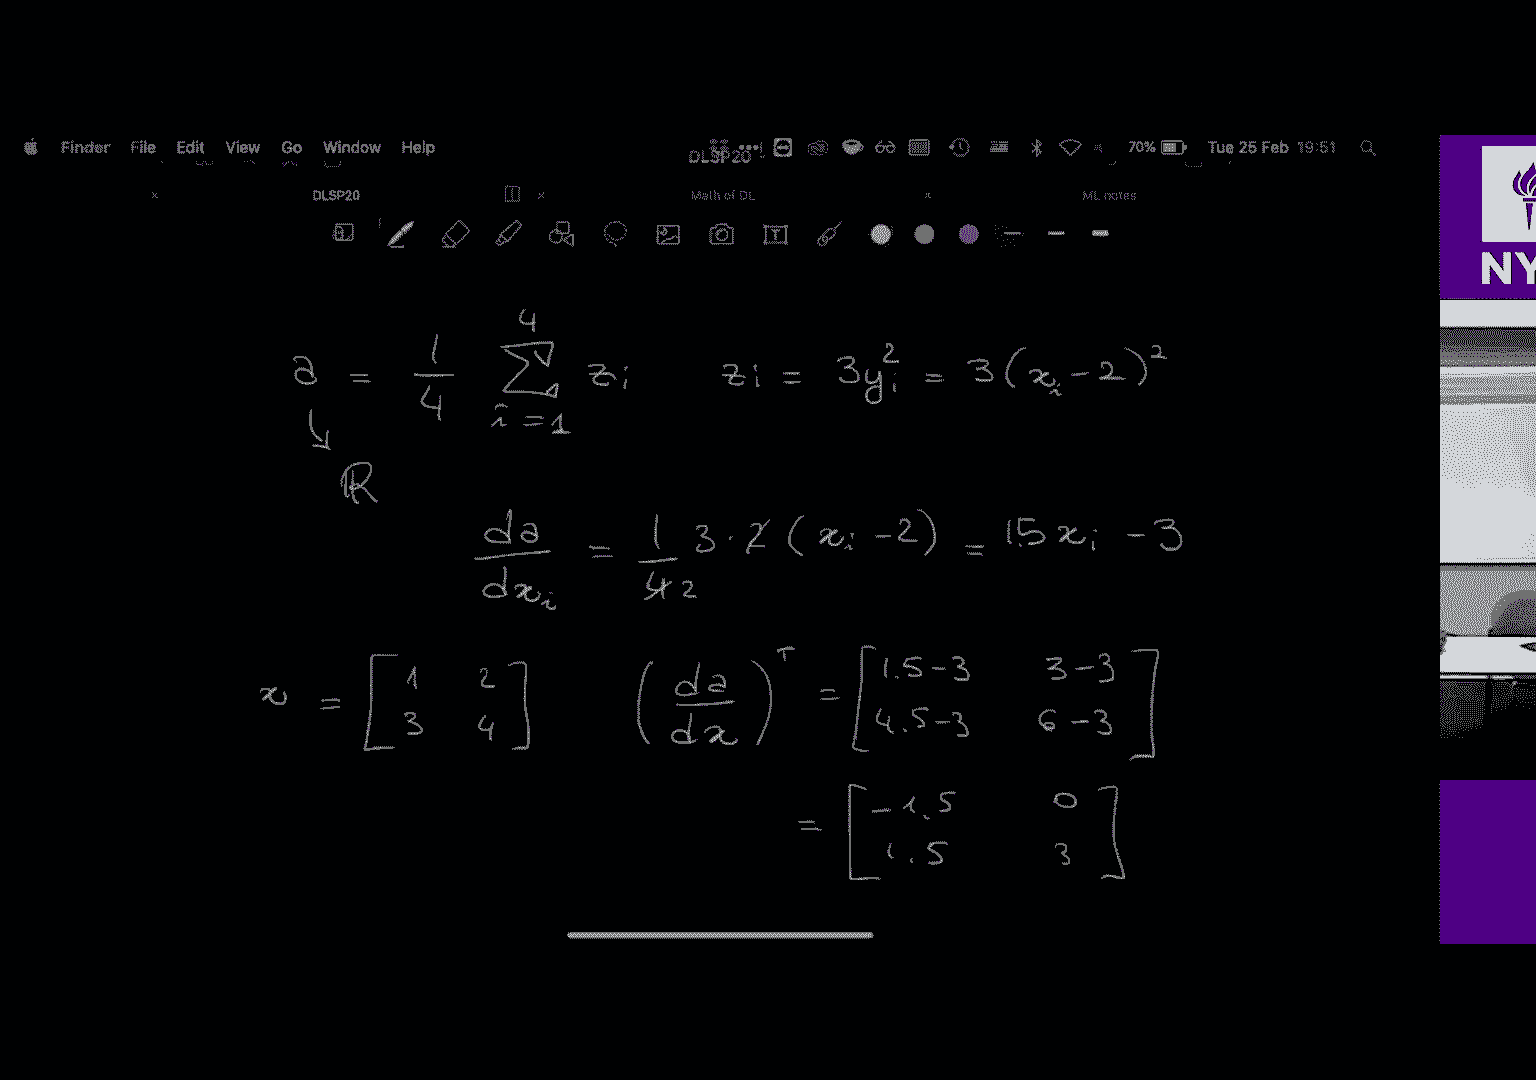 Finder File Edit View Go Window Help 70% Tue 25 Feb 19:51
DLSP20
DLSP20 Math of DL ML notes
a = 1/4 ∑_{i=1}^{4} z_i z_i = 3y_i^2 = 3(x_i-2)^2
↳ ℝ
da/dx_i = 1/4 2 3·2(x_i-2) = 1.5x_i-3
x = [1 2; 3 4] (da/dx)^T = [1.5-3 3-3; 4.5-3 6-3]
= [-1.5 0; 1.5 3]
NY